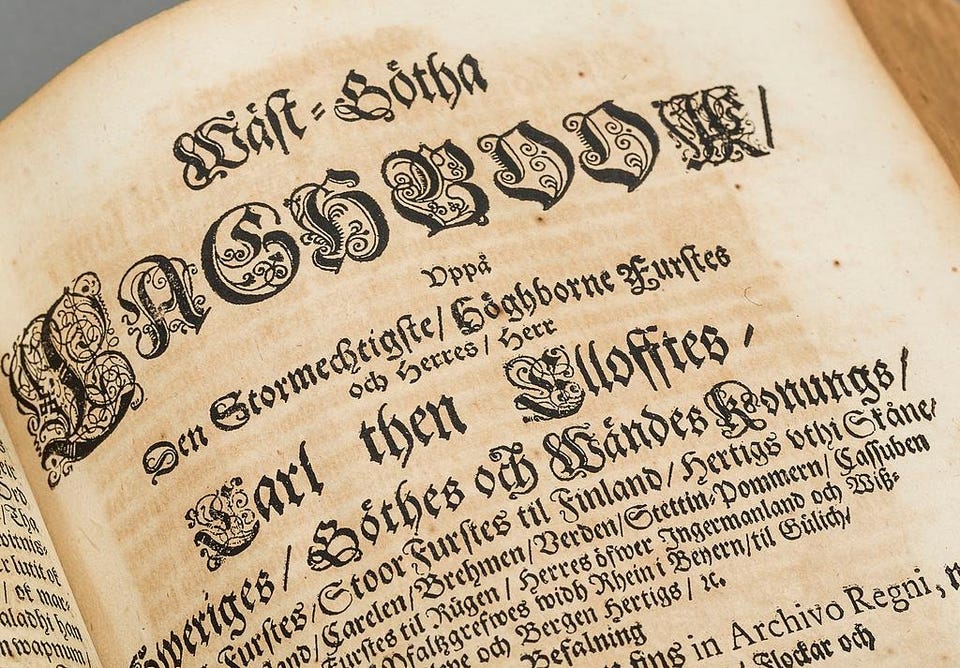 Wäst-Götha
LAGHBOOK/
Vppå
Den Stormechtigste/ Höghborne Furstes
och Herres/ Herr
Carl then Ellofftes,
Sweriges/ Göthes och Wändes Konungs/
Furstes/ Stoor Furstes til Finland/ Hertigs vthi Skåne/
land/ Carelen/ Brehmen/ Verden/ Stettin-Pommern/ Cassuben
Furstes til Rügen/ Herres öfwer Ingermanland och Wiß-
Pfaltzgrefwes widh Rhein i Beyern/ til Gülich/
och Bergen Hertigs/ ꝛc.
Befalning
fins in Archivo Regni,
Flockar och
/ Tha
lutit oc
/ oc mar-
aladhi han